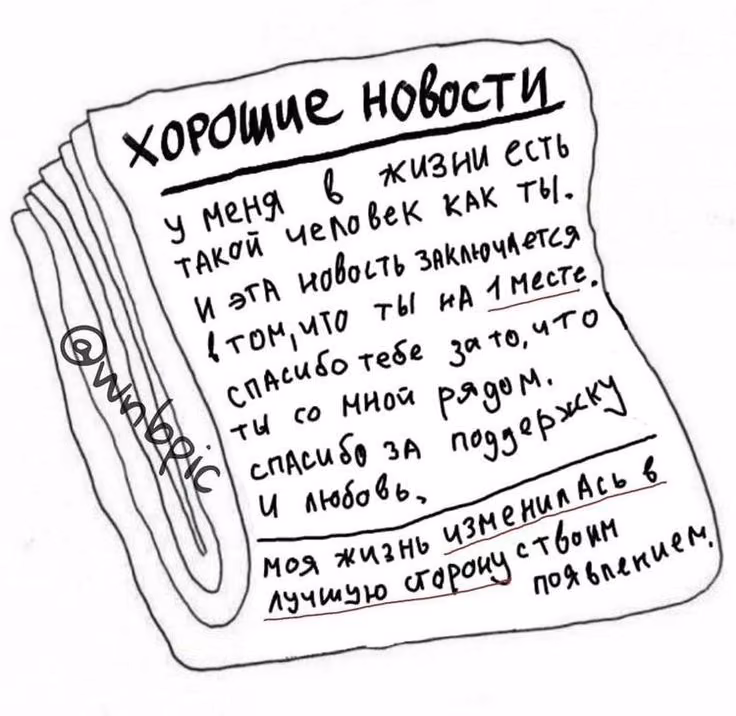 ХОРОШИЕ НОВОСТИ
У МЕНЯ В ЖИЗНИ ЕСТЬ
ТАКОЙ ЧЕЛОВЕК КАК ТЫ.
И ЭТА НОВОСТЬ ЗАКЛЮЧАЕТСЯ
В ТОМ, ЧТО ТЫ НА 1 МЕСТЕ.
СПАСИБО ТЕБЕ ЗА ТО, ЧТО
ТЫ СО МНОЙ РЯДОМ.
СПАСИБО ЗА ПОДДЕРЖКУ
И ЛЮБОВЬ,
МОЯ ЖИЗНЬ ИЗМЕНИЛАСЬ В
ЛУЧШУЮ СТОРОНУ С ТВОИМ
ПОЯВЛЕНИЕМ.
@wnbpic